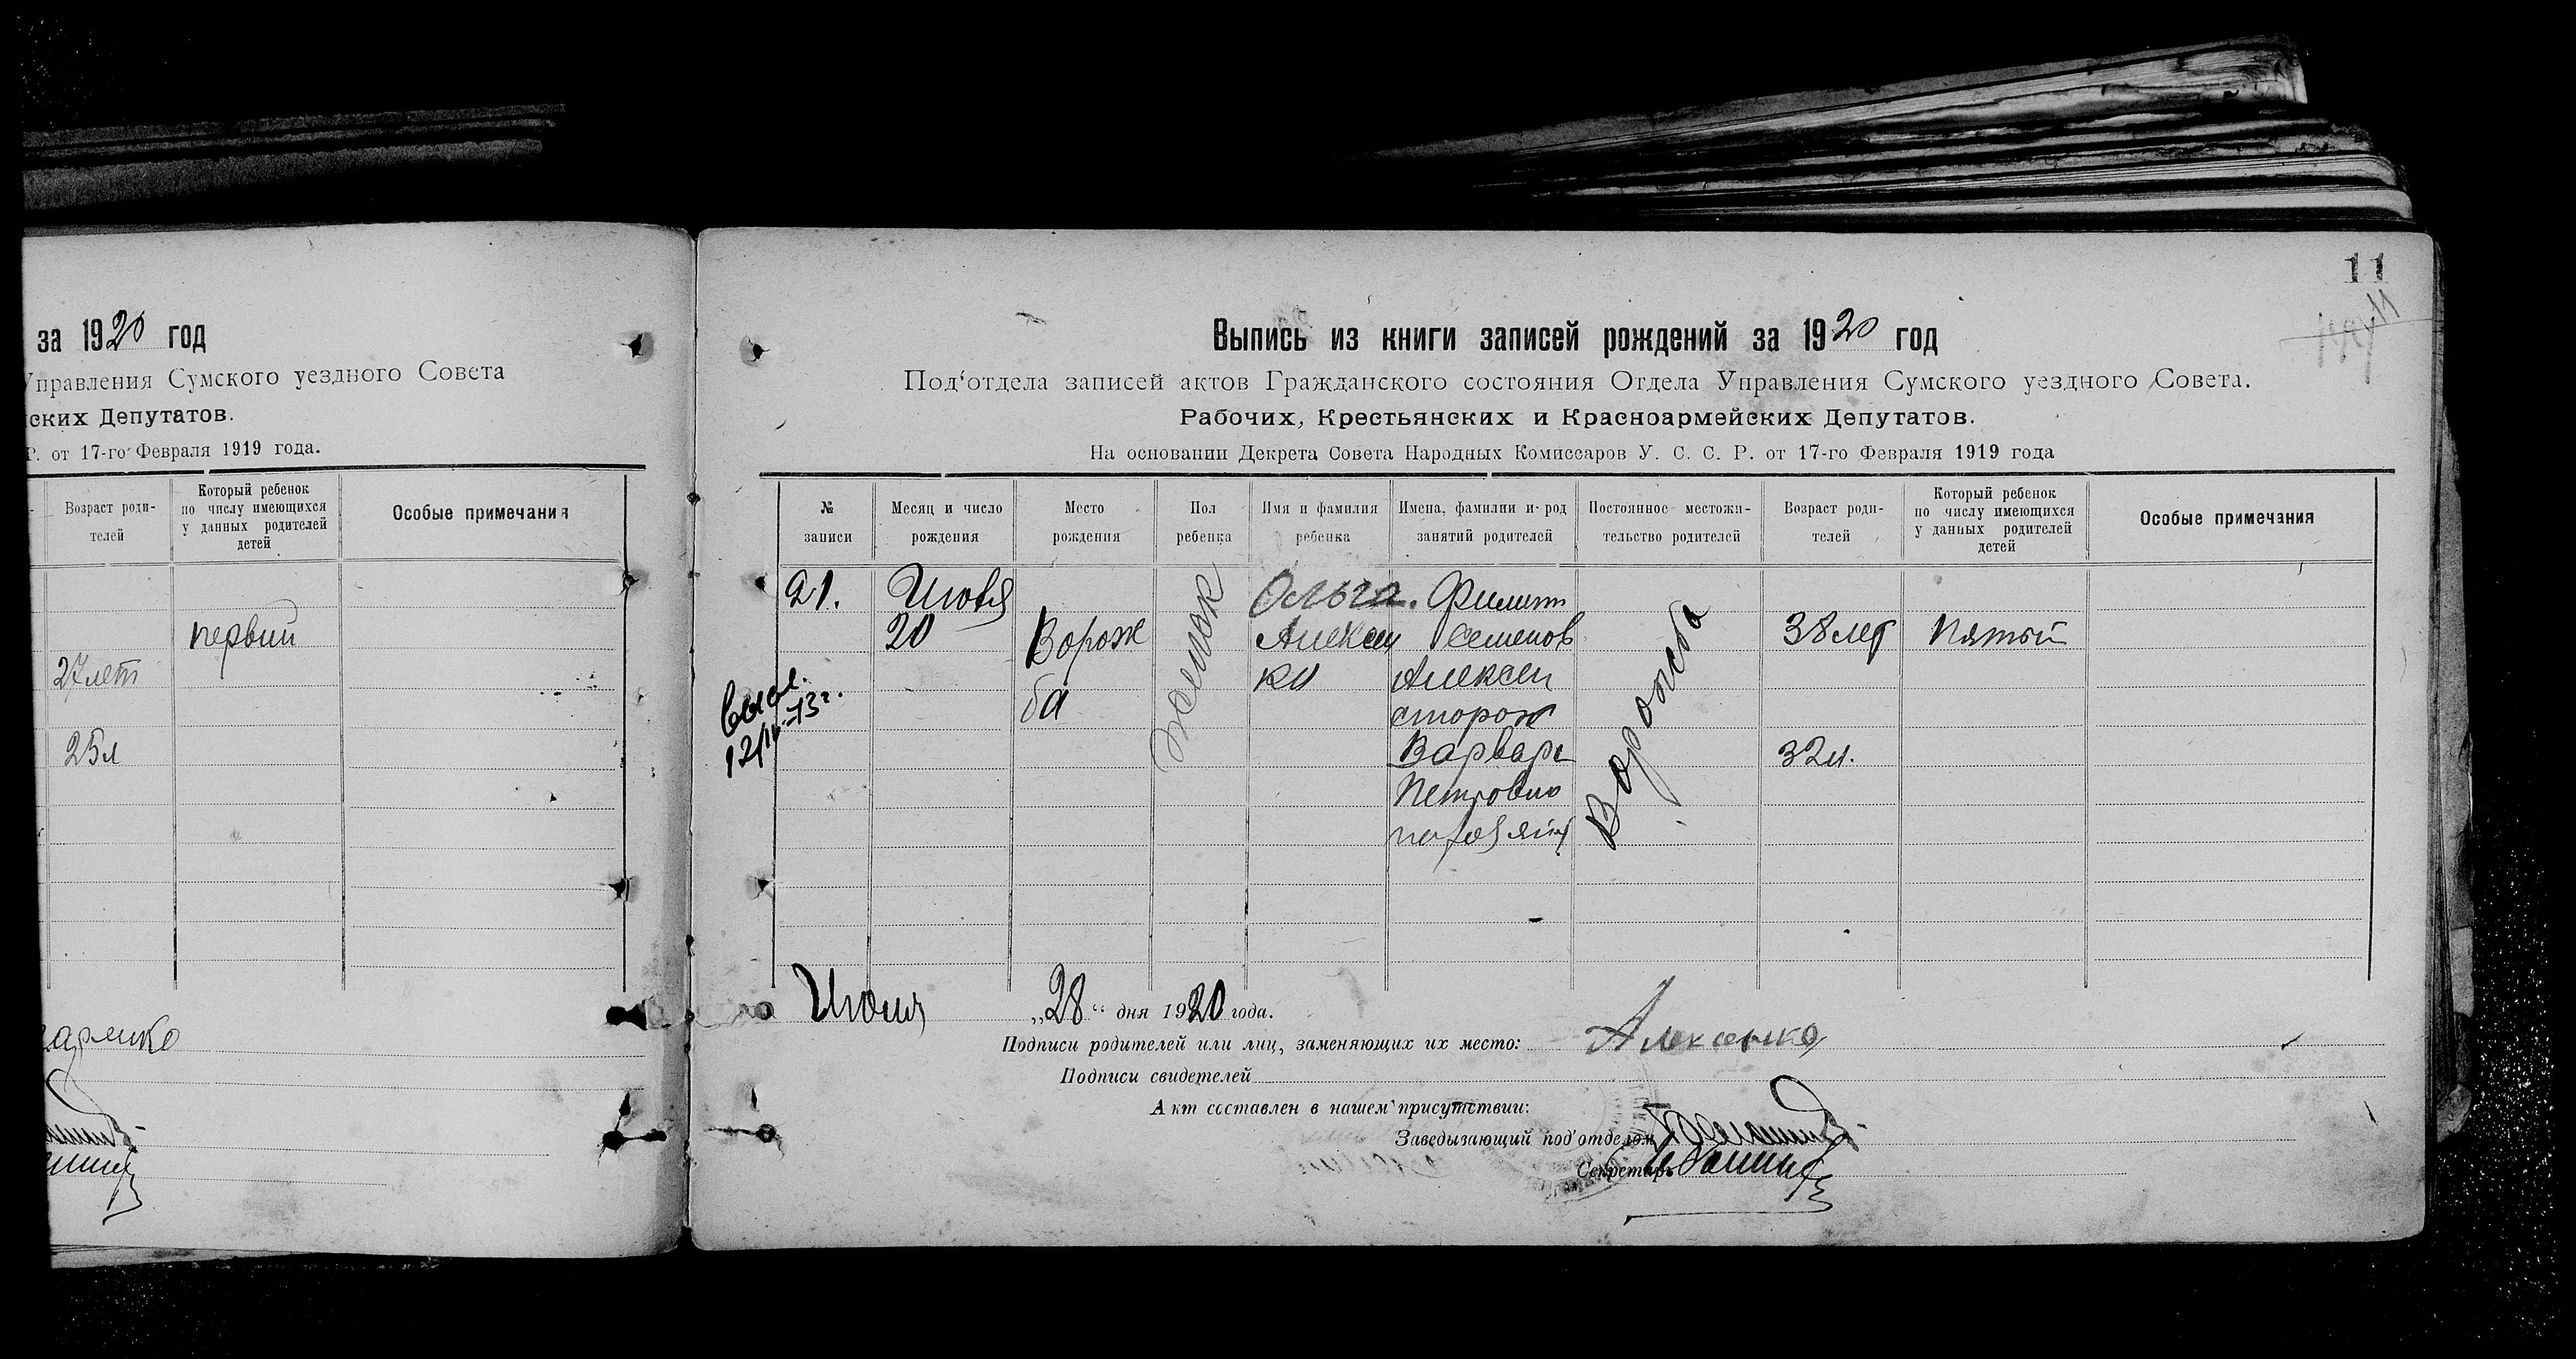 за 1920 год
Управления Сумского уездного Совета
ских Депутатов.
Р. от 17-го Февраля 1919 года.
Возраст роди-
телей
Который ребенок
по числу имеющихся
у данных родителей
детей
Особые примечания
первий
27 лет
25 л
11
Выпись из книги записей рождений за 1920 год
Под'отдела записей актов Гражданского состояния Отдела Управления Сумского уездного Совета.
Рабочих, Крестьянских и Красноармейских Депутатов.
На основании Декрета Совета Народных Комиссаров У. С. С. Р. от 17-го Февраля 1919 года
№
записи
Месяц и число
рождения
Место
рождения
Пол
ребенка
Имя и фамилия
ребенка
Имена, фамилии и род
занятий родителей
Постоянное местожи-
тельство родителей
Возраст роди-
телей
Который ребенок
по числу имеющихся
у данных родителей
детей
Особые примечания
21.
20
Ворож
ба
Ольга.
Алексен
ко
Филип
Семенов
Алексен
сторож
Варвара
Петровна
Ворожба
38 лет
32 л.
Пятый
28 дня 1920 года.
Подписи родителей или лиц, заменяющих их место: Алексенко
Подписи свидетелей
Акт составлен в нашем присутствии:
Заведывающий под'отделом
Секретарь